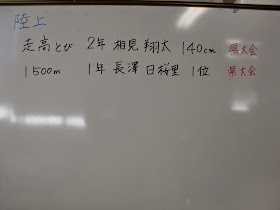 陸上
走高とび 2年 相見 翔太 140cm 県大会
1500m 1年 長澤 日桜里 1位 県大会